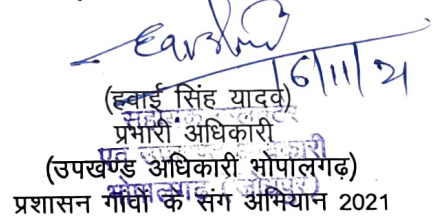 16/11/21
(हवाई सिंह यादव)
प्रभारी अधिकारी
(उपखण्ड अधिकारी भोपालगढ़)
प्रशासन गॉवों के संग अभियान 2021